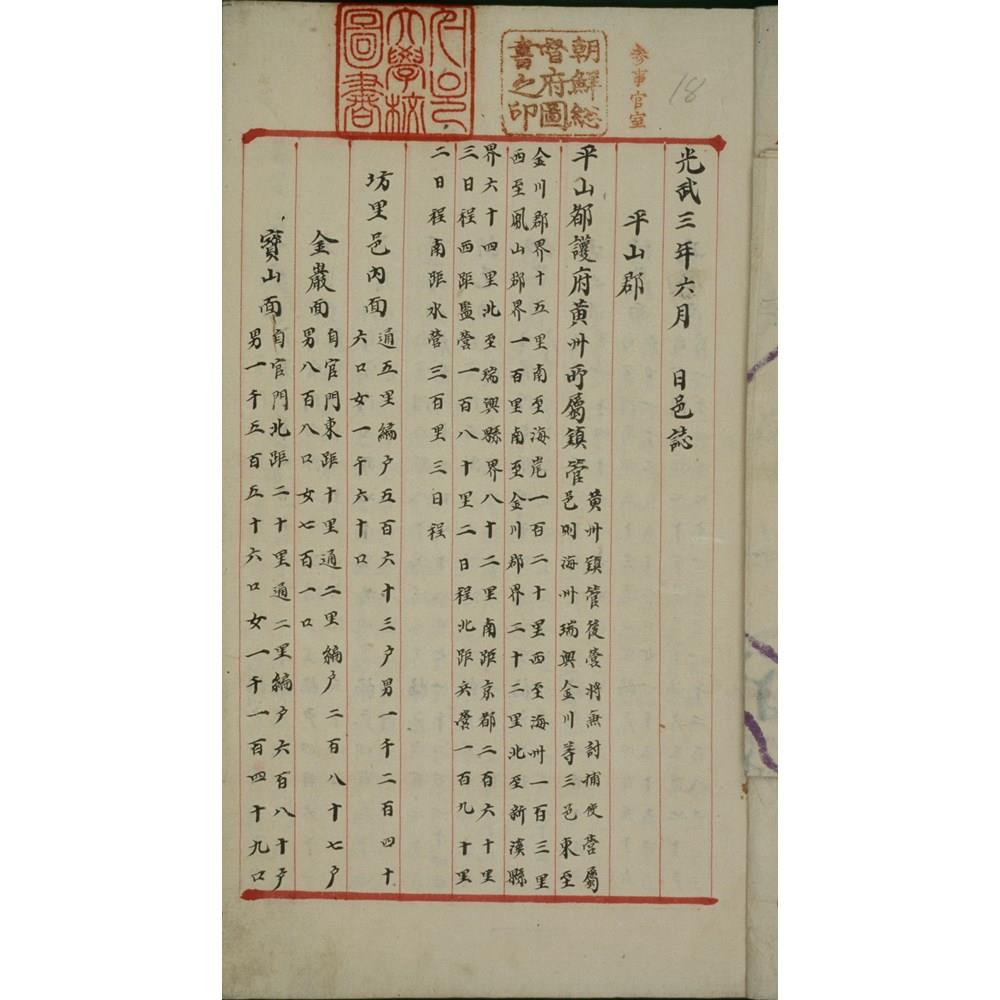 18
參事官室
朝鮮總
督府圖
書之印
大學校
圖書
光武三年六月 日邑誌
平山郡
平山都護府黃州所屬鎭管
黃州鎭管後營將兼討捕使營屬
邑則海州瑞興金川等三邑東至
金川郡界十五里南至海岸一百二十里西至海州一百三里
西至鳳山郡界一百里南至金川郡界二十二里北至新溪縣
界六十四里北至瑞興縣界八十二里南距京都二百六十里
三日程西距監營一百八十里二日程北距兵營一百九十里
二日程南距水營三百里三日程
坊里邑內面
通五里編户五百六十三户男一千二百四十
六口女一千六十口
金巖面
自官門東距十里通二里編户二百八十七户
男八百八口女七百一口
寶山面
自官門北距二十里通二里編户六百八十户
男一千五百五十六口女一千一百四十九口